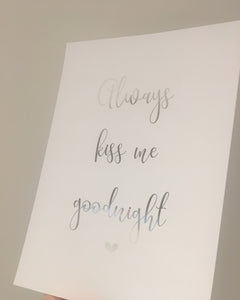 Always
kiss me
goodnight